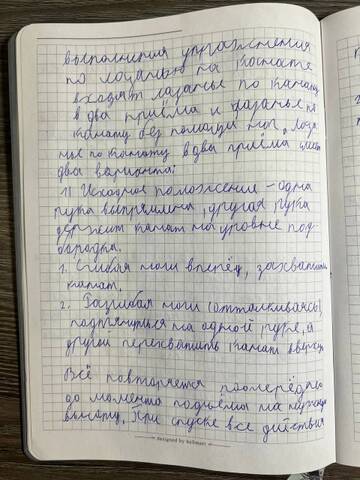 выполнения упражнения
по лазанью на канате
входят лазанье по канату
в два приёма и лазанье по
канату без помощи ног. Лаза
нье по канату в два приёма имеет
два варианта:
1) Исходное положение - одна
рука выпрямлена, другая рука
держит канат на уровне под-
бородка.
1. Сгибая ноги вперёд, захватить
канат.
2. Разгибая ноги (отталкиваясь),
подтянуться на одной руке, а
другой перехватить канат вверху
Всё повторяется поочерёдно
до момента поднятия на нужную
высоту. При спуске все действия
designed by hallmart